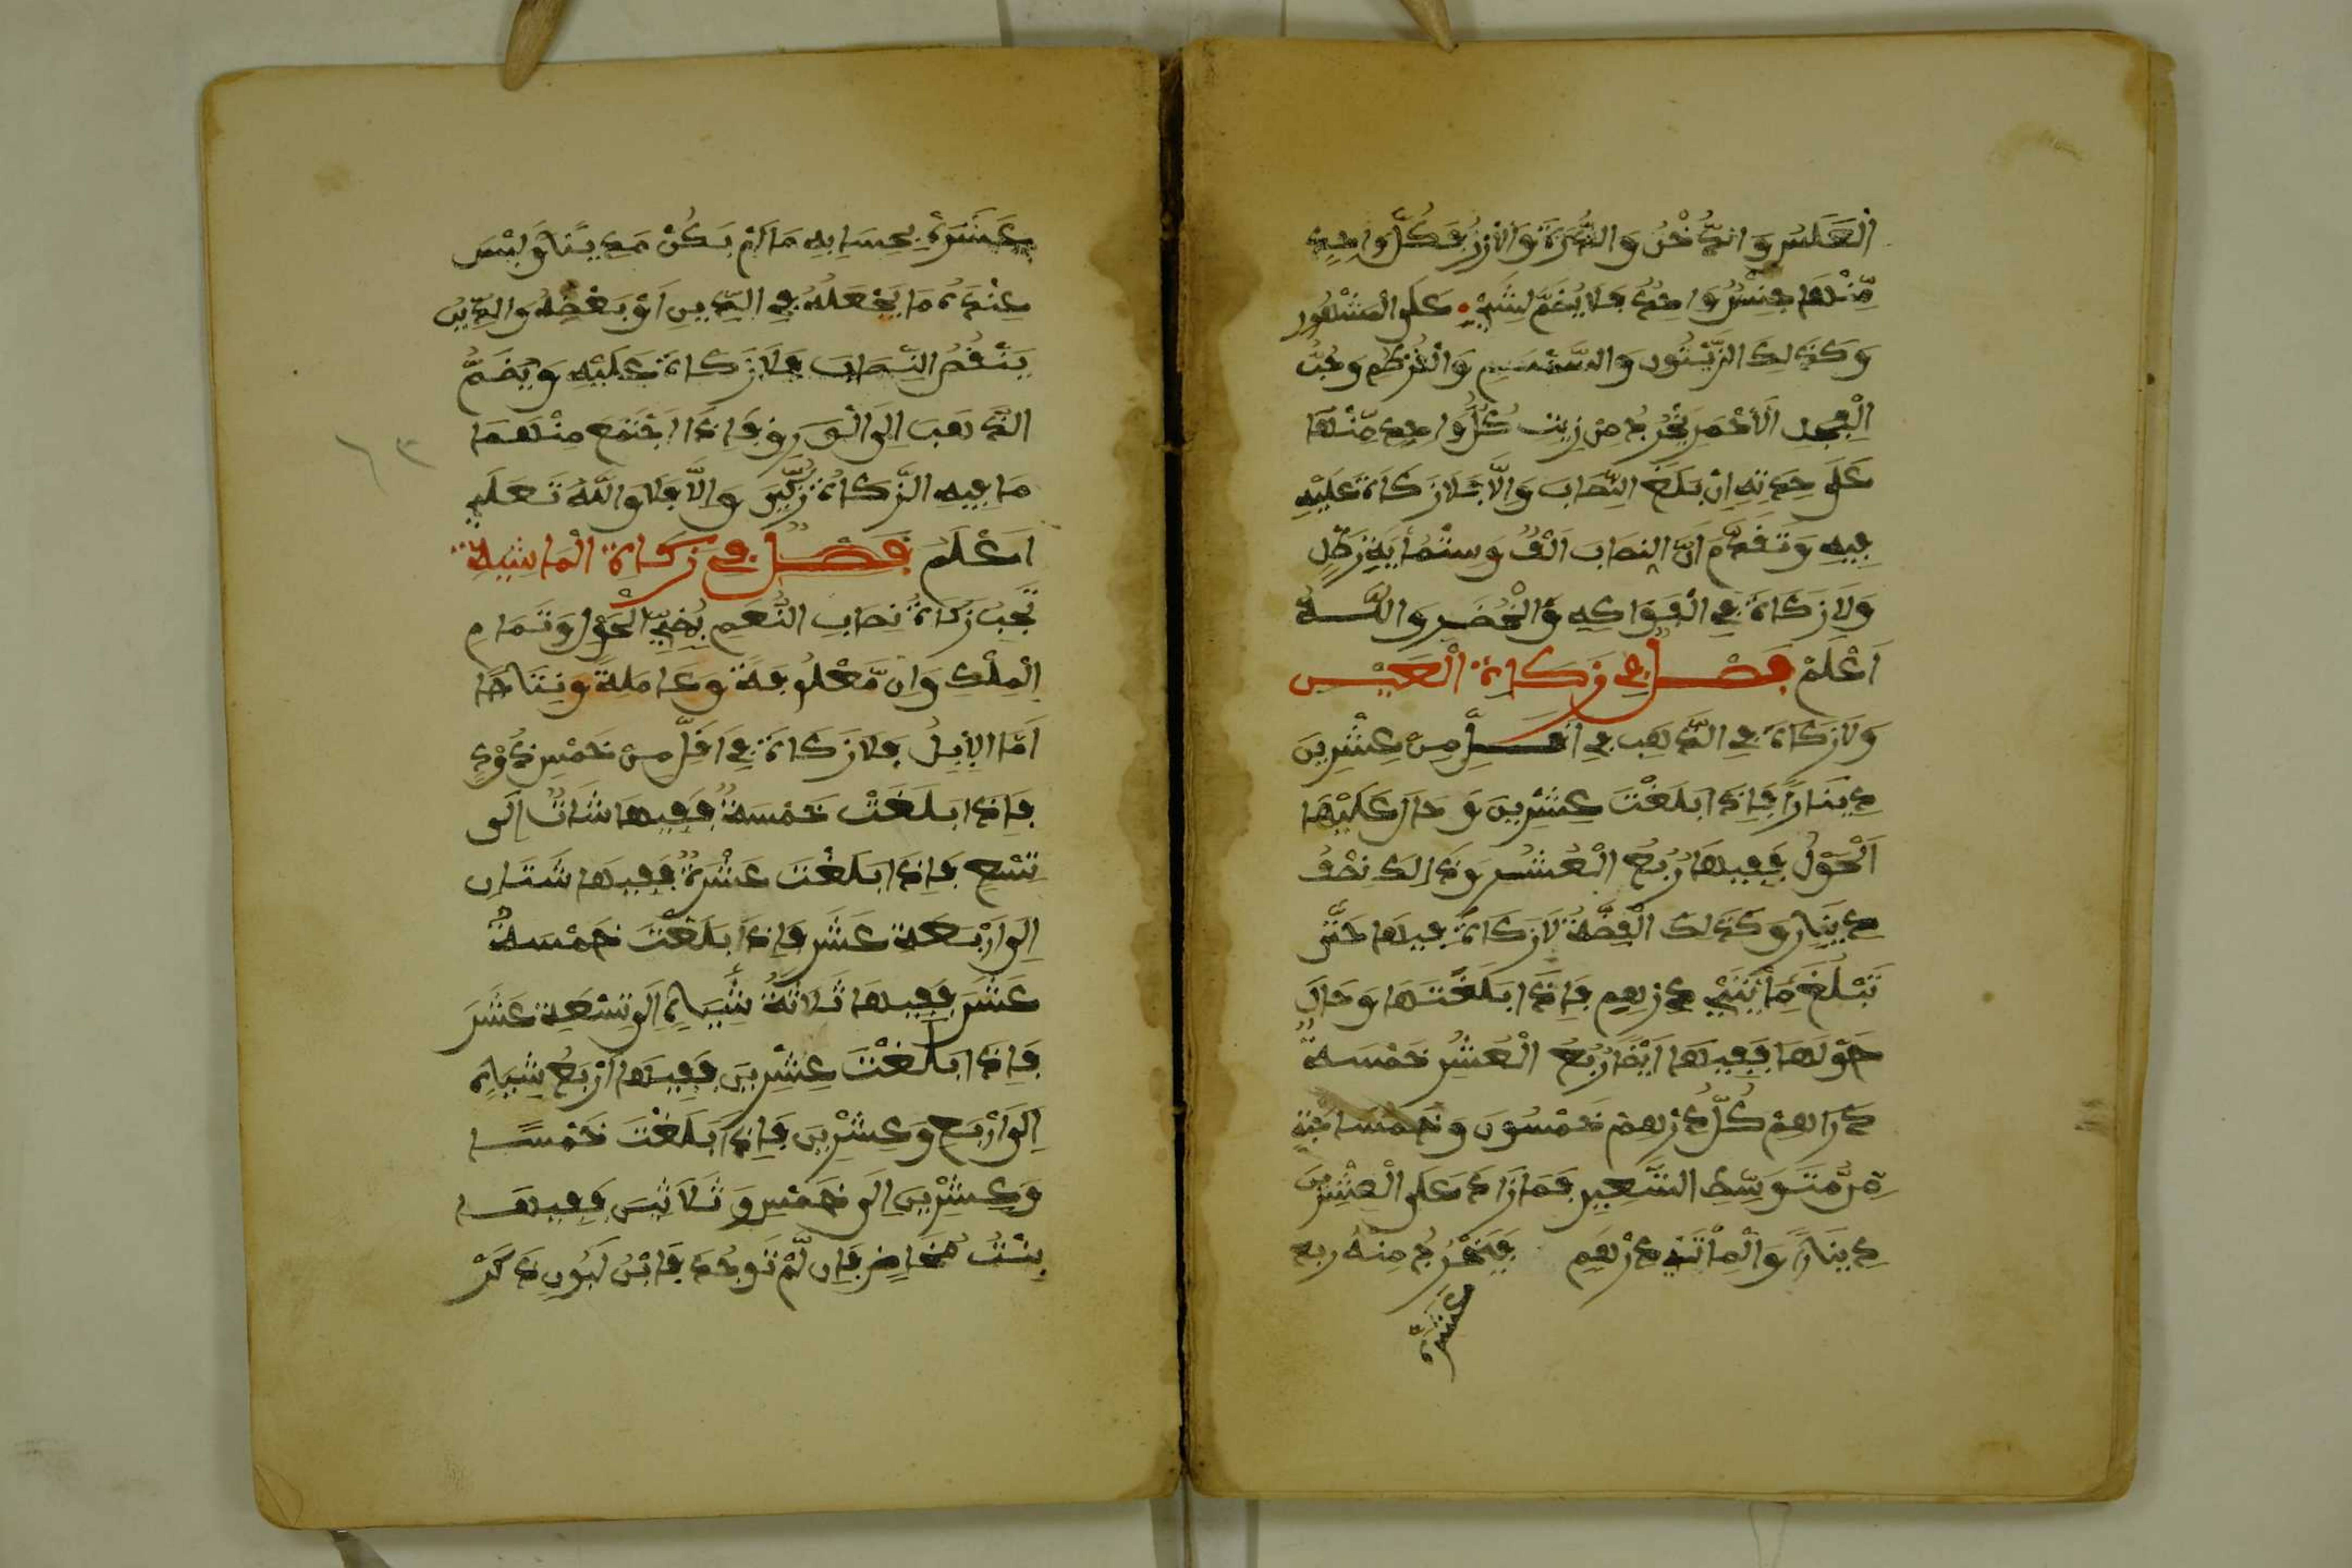 الْعَلَسُ وَالدُّخْنُ وَالذُّرَةُ وَالأُرْزُ فَكُلُّ وَاحِدٍ
مِّنْهَا جِنْسٌ وَاحِدٌ فَلَا يُضَمُّ لِشَيْءٍ عَلَى الْمَشْهُورِ
وَكَذَلِكَ الزَّيْتُونِ وَالسَّمْسِمِ وَالْقُرْطُمِ وَحَبُّ
الْفِجْلِ الْأَحْمَرِ يُخْرَجُ مِنْ زِيْتِ كُلِّ وَاحِدٍ مِّنْهَا
عَلَى حِدَتِهِ اِنْ بَلَغَ النِّصَابَ وَاِلَّا فَلَا زَكَاةَ عَلَيْهِ
فِيهِ وَتَقَدَّمَ اَنَّ النِصَابَ اَلْفٌ وَسِتُّمِأيَةِ رَطْلٍ
وَلَا زَكَاةَ فِي الْفَوَاكِهِ وَالْخُضَرِ وَاللَّهُ
اَعْلَمْ فَصْلٌ فِي زَكَاةِ الْعَيْنِ
وَلَا زَكَاةَ فِي الذَّهَبِ فِي اَقَلِّ مِنْ عِشْرِينَ
دِينَارًا فَاِذَا بَلَغْتَ عِشْرِينَ وَحَالَ عَلَيْهَا
اَلْحَوْلُ فَفِيهَا رُبُعُ الْعُشُرِ وَذَالِكَ نِصْفُ
دِينَارٍ وَكَذَلِكَ الْفِضَّةُ لَا زَكَاةَ فِيهَا حَتَّى
تَبْلُغَ مِأتَتَيْ دِرْهِمٍ فَاِذَا بَلَغْتَهَا وَحَالَ
حَوْلَهَا فَفِيهَا اَيْضًا رُبُعُ الْعُشُرِ خَمْسَةُ
دَرَاهِمْ كُلُّ دِرْهِمْ خَمْسُونَ وَخَمْسَا حَبَّةٍ
مِّن مُّتَوَسِّطِ الشَّعِيرِ فَمَا زَادَ عَلَى الْعِشْرِينَ
دِينَارًا وَالْمِأتَيْ دِرْهَمِ فَيَخْرُجُ مِنْهُ رُبع
عشره
عَشَرَةِ بِحِسَابِهِ مَا لَمْ يَكُنْ مَدِينًا وَلَيْسَ
عِنْدَهُ مَا يَجْعَلُهُ فِي الدَّيْنِ اَوْ بَعْضِهِ وَالدَّيْنُ
يَنْقُصُ النِّصَابَ فَلَا زَكَاةَ عَلَيْهِ وَيُضَمُّ
الذَّهَبَ اِلَى الْوَرِقِ فَاِذَا اجْتَمَعَ مِنْهُمَا
مَا فِيهِ الزَّكَاةُ زُكِّيَ وَاِلَّا فَلَا وَاللَّهُ تَعَلَى
اَعْلَمُ فَصْلٌ فِي زَكَاةِ الْمَاشِيَةِ
تَجِبُ زَكَاةُ نِصَابِ النَّعَمِ بِمُضِيِّ الْحَوْلِ وَتَمَامِ
الْمِلْكِ وَاِن مَّعْلُوفَةً وَعَامِلَةً وَنِتَاجًا
اَمَّا الْاِبِلُ فَلَا زَكَاةَ فِي اَقَلِّ مِنْ خَمْسِ ذَوْدٍ
فَاِذَا بَلَغَتْ خَمْسَةً فَفِيهَا شَاةٌ اِلَى
تِسْعٍ فَاِذَا بَلَغْتَ عَشْرَةً فَفِيهَا شَتَانِ
اِلَى اَرْبَعَةَ عَشَرَ فَاِذَا بَلَغْتَ خَمْسَةَ
عَشَرَ فَفِيهَا ثَلَاثَةُ شِيَاهٍ اِلَى تِسْعَةِ عَشَرَ
فَاِذَا بَلَغْتَ عِشْرِينَ فَفِيهَا اَرْبَعُ شِيَاهٍ
اِلَى اَرْبَعٍ وَعِشْرِينَ فَاِذَا بَلَغْتَ خَمْسًا
وَعِشْرِينَ اِلَى خَمْسٍ وَثَلَاثِينَ فَفِيهَا
بِنْتُ مَخَاضٍ فَاِن لَّمْ تُوجَدْ فَابْنُ لَبُونٍ ذَكَرْ
٦٣